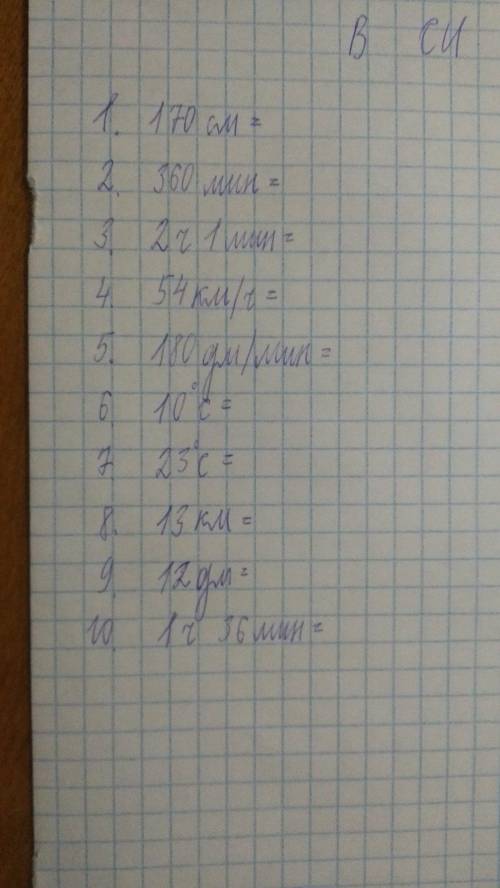 В СИ
1. 170 см =
2. 360 мин =
3. 2 ч 1 мин =
4. 54 км/ч =
5. 180 дм/мин =
6. 10°С =
7. 23°С =
8. 13 км =
9. 12 дм =
10. 1 ч 36 мин =